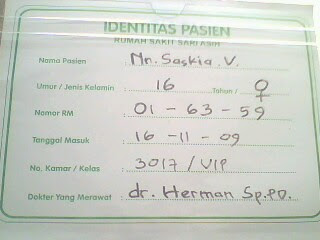 IDENTITAS PASIEN
RUMAH SAKIT SARI ASIH
Nama Pasien : Nn. Saskia. V.
Umur / Jenis Kelamin : 16 Tahun / ♀
Nomor RM : 01 - 63 - 59
Tanggal Masuk : 16 - 11 - 09
No. Kamar / Kelas : 3017 / VIP
Dokter Yang Merawat : dr. Herman Sp.PD.